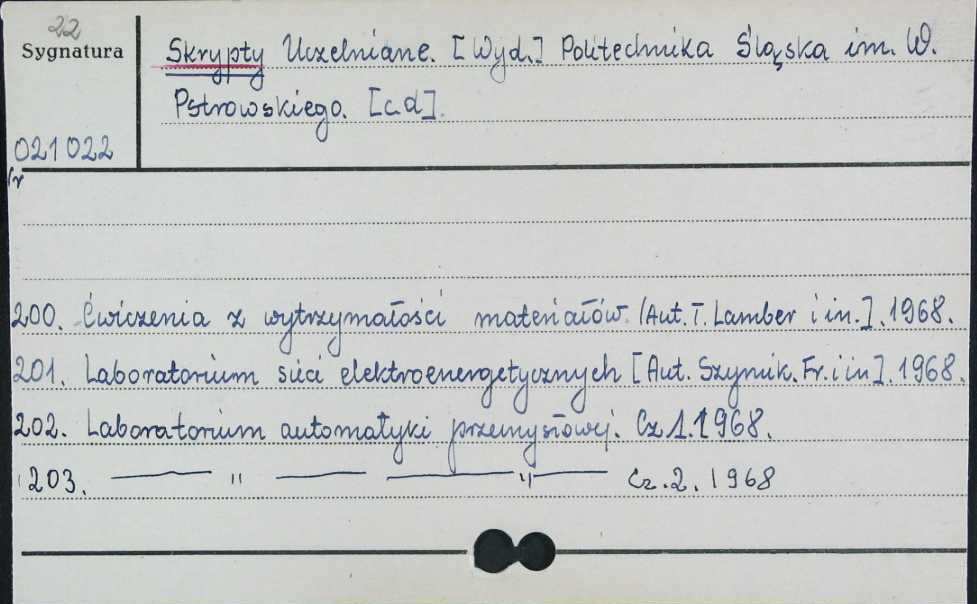 22
Sygnatura
Skrypty Uczelniane. [Wyd.] Politechnika Śląska im. W.
Pstrowskiego. [c.d].
021022
200. Ćwiczenia z wytrzymałości materiałów. [Aut. T. Lamber i in.]. 1968.
201. Laboratorium sieci elektroenergetycznych [Aut. Szymik. Fr. i in]. 1968.
202. Laboratorium automatyki przemysłowej. Cz 1. 1968.
203. — " — — " — Cz. 2. 1968